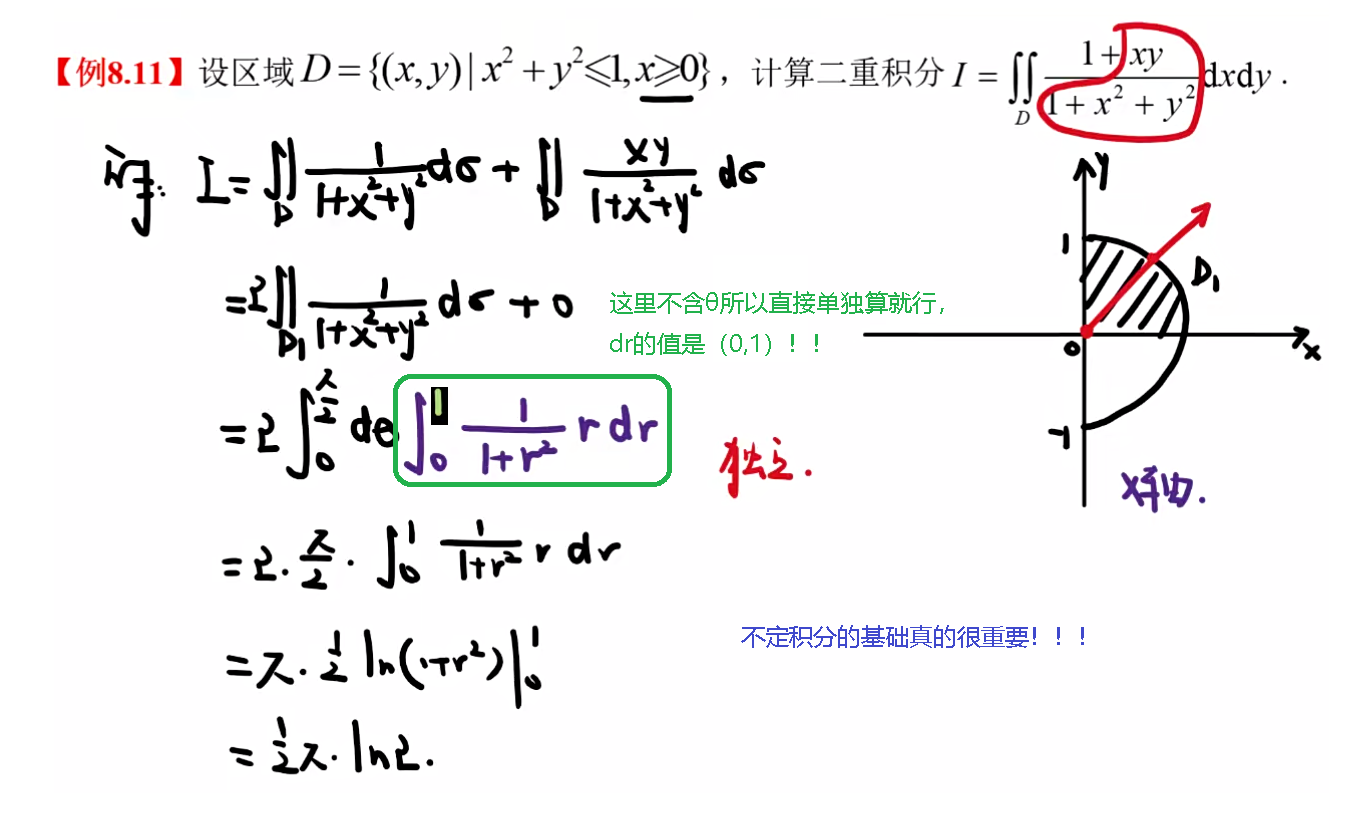 【例8.11】设区域 D={(x,y)|x²+y²≤1,x≥0}，计算二重积分 I=∬_D (1+xy)/(1+x²+y²) dxdy.
解: I=∬_D 1/(1+x²+y²) dσ + ∬_D xy/(1+x²+y²) dσ
=2∬_D₁ 1/(1+x²+y²) dσ + 0
这里不含θ所以直接单独算就行，
dr的值是（0,1）！！
=2∫₀^(π/2) dθ ∫₀^1 1/(1+r²) r dr
独立.
=2·π/2·∫₀^1 1/(1+r²) r dr
=π·1/2 ln(1+r²)|₀^1
=1/2 π·ln2.
不定积分的基础真的很重要！！！
y
1
D₁
0
x
-1